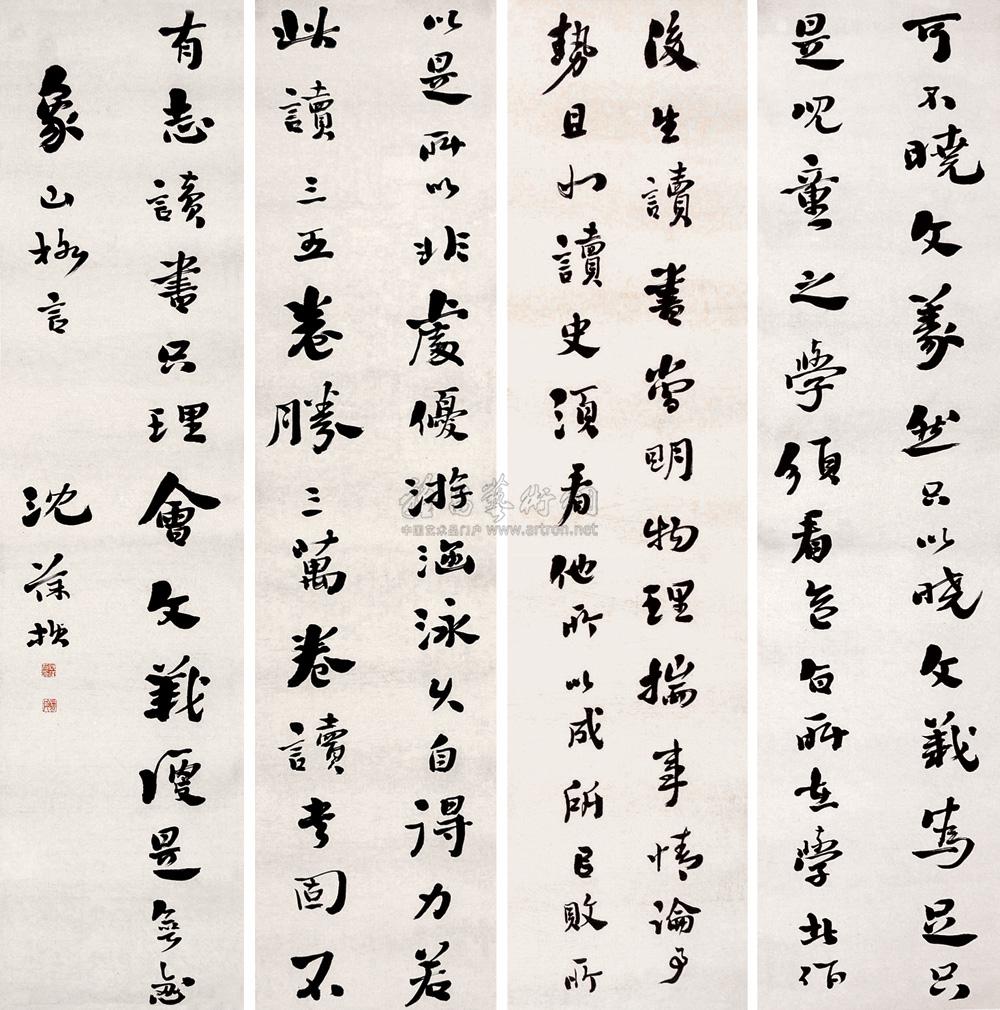 可不曉文義然只以曉文義為是只
是児童之學須看意旨所在學
後生讀書當明物理揣事情論事
勢且如讀史須看他所以成所㠯敗所
以是所以非處優游涵泳久自得力若
此讀三五卷勝三萬卷讀書固不
有志讀書只理會文義便是無志
象山格言
沈葆楨
雅昌藝術網
中国艺术品门户 www.artron.net